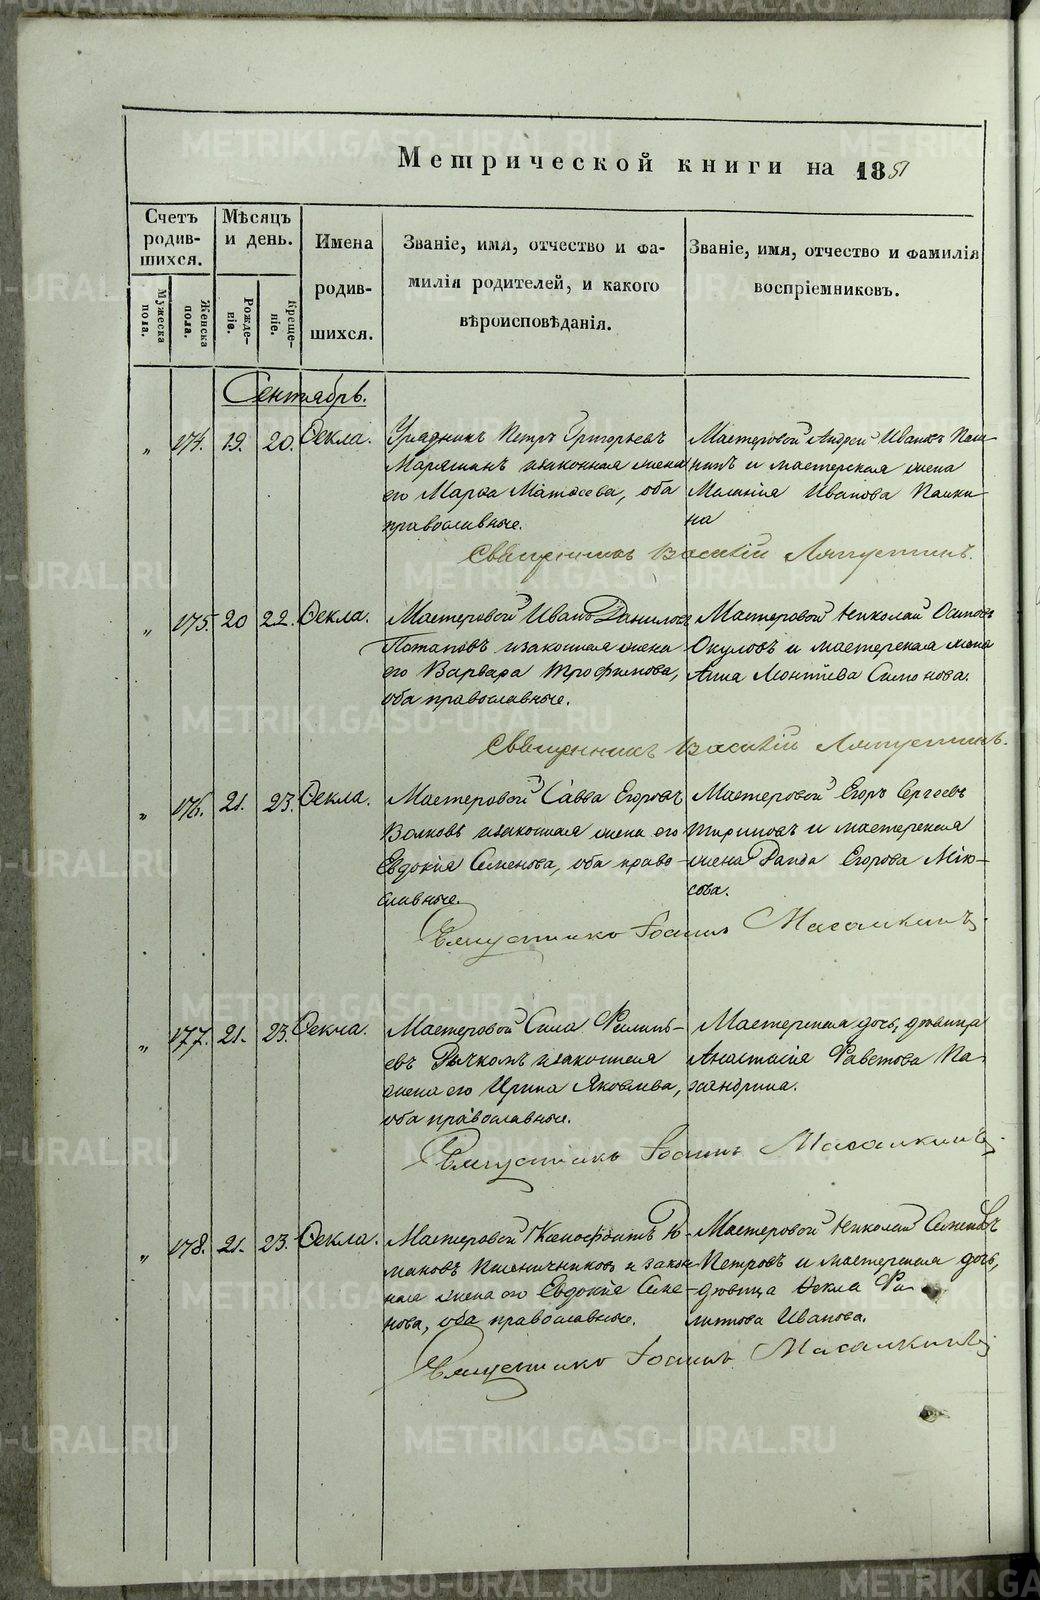 METRIKI.GASO-URAL.RU
Метрической книги на 1851
Счетъ родив-шихся.
Мужеска пола.
Женска пола.
Мѣсяцъ и день.
Рожде-ніе.
Креще-ніе.
Имена родив-шихся.
Званіе, имя, отчество и фа-
милія родителей, и какого
вѣроисповѣданія.
Званіе, имя, отчество и фамилія
воспріемниковъ.
Сентябрь.
„ 174. 19. 20. Ѳекла.
Урядникъ Петръ Григорьевъ
и законная жена
его Марѳа Матѳеева, оба
православные.
Мастеровой Андрей
и мастерская жена
Меланія Иванова Пашки-
на
Священникъ Василій Ляпустинъ.
„ 175. 20 22. Ѳекла.
Мастеровой Иванъ Даниловъ
Потаповъ и законная жена
его Варвара Трофимова,
оба православные.
Мастеровой Николай Осиповъ
Окуловъ и мастерская жена
Анна Леонтіева Симонова.
Священникъ Василій Ляпустинъ.
„ 176. 21. 23. Ѳекла.
Мастеровой Савва Егоровъ
Волковъ и законная жена его
Евдокія Семенова, оба право-
славные.
Мастеровой Егоръ Сергеевъ
и мастерская
жена Егорова
сова.
Іоаннъ Масалкинъ
„ 177. 21. 23. Ѳекла.
Мастеровой Сила Филипь-
евъ и законная
жена его Ирина Яковлева,
оба православные.
Мастерская дочь, дѣвица
Анастасія
Іоаннъ Масалкинъ
„ 178. 21. 23. Ѳекла.
Мастеровой Ксенофонтъ Ро-
мановъ Пшеничниковъ и закон-
ная жена его Евдокія Семе-
нова, оба православные.
Мастеровой Николай Семеновъ
Петровъ и мастерская дочь,
дѣвица Ѳекла Фи-
липпова Иванова.
Іоаннъ Масалкинъ